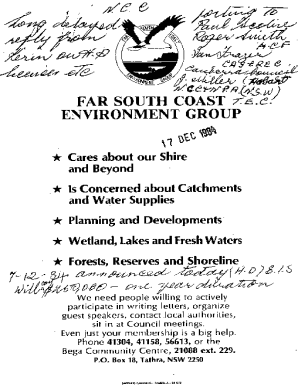 N C C
Long delayed
reply from
Kerin on H.D
licences etc
porting to
Paul
Roger Smith
A C F
Van
J. Miller Hobart
NCC & NPA (NSW)
T.E.C.
FAR SOUTH COAST
ENVIRONMENT GROUP
17 DEC 1984
★ Cares about our Shire
and Beyond
★ Is Concerned about Catchments
and Water Supplies
★ Planning and Developments
★ Wetland, Lakes and Fresh Waters
★ Forests, Reserves and Shoreline
7-12-84 announced today (H.D) E.I.S
Will 0,000 - one year duration
We need people willing to actively
participate in writing letters, organize
guest speakers, contact local authorities,
sit in at Council meetings.
Even just your membership is a big help.
Phone 41304, 41158, 56613, or the
Bega Community Centre, 21088 ext. 229.
P.O. Box 18, Tathra, NSW 2250